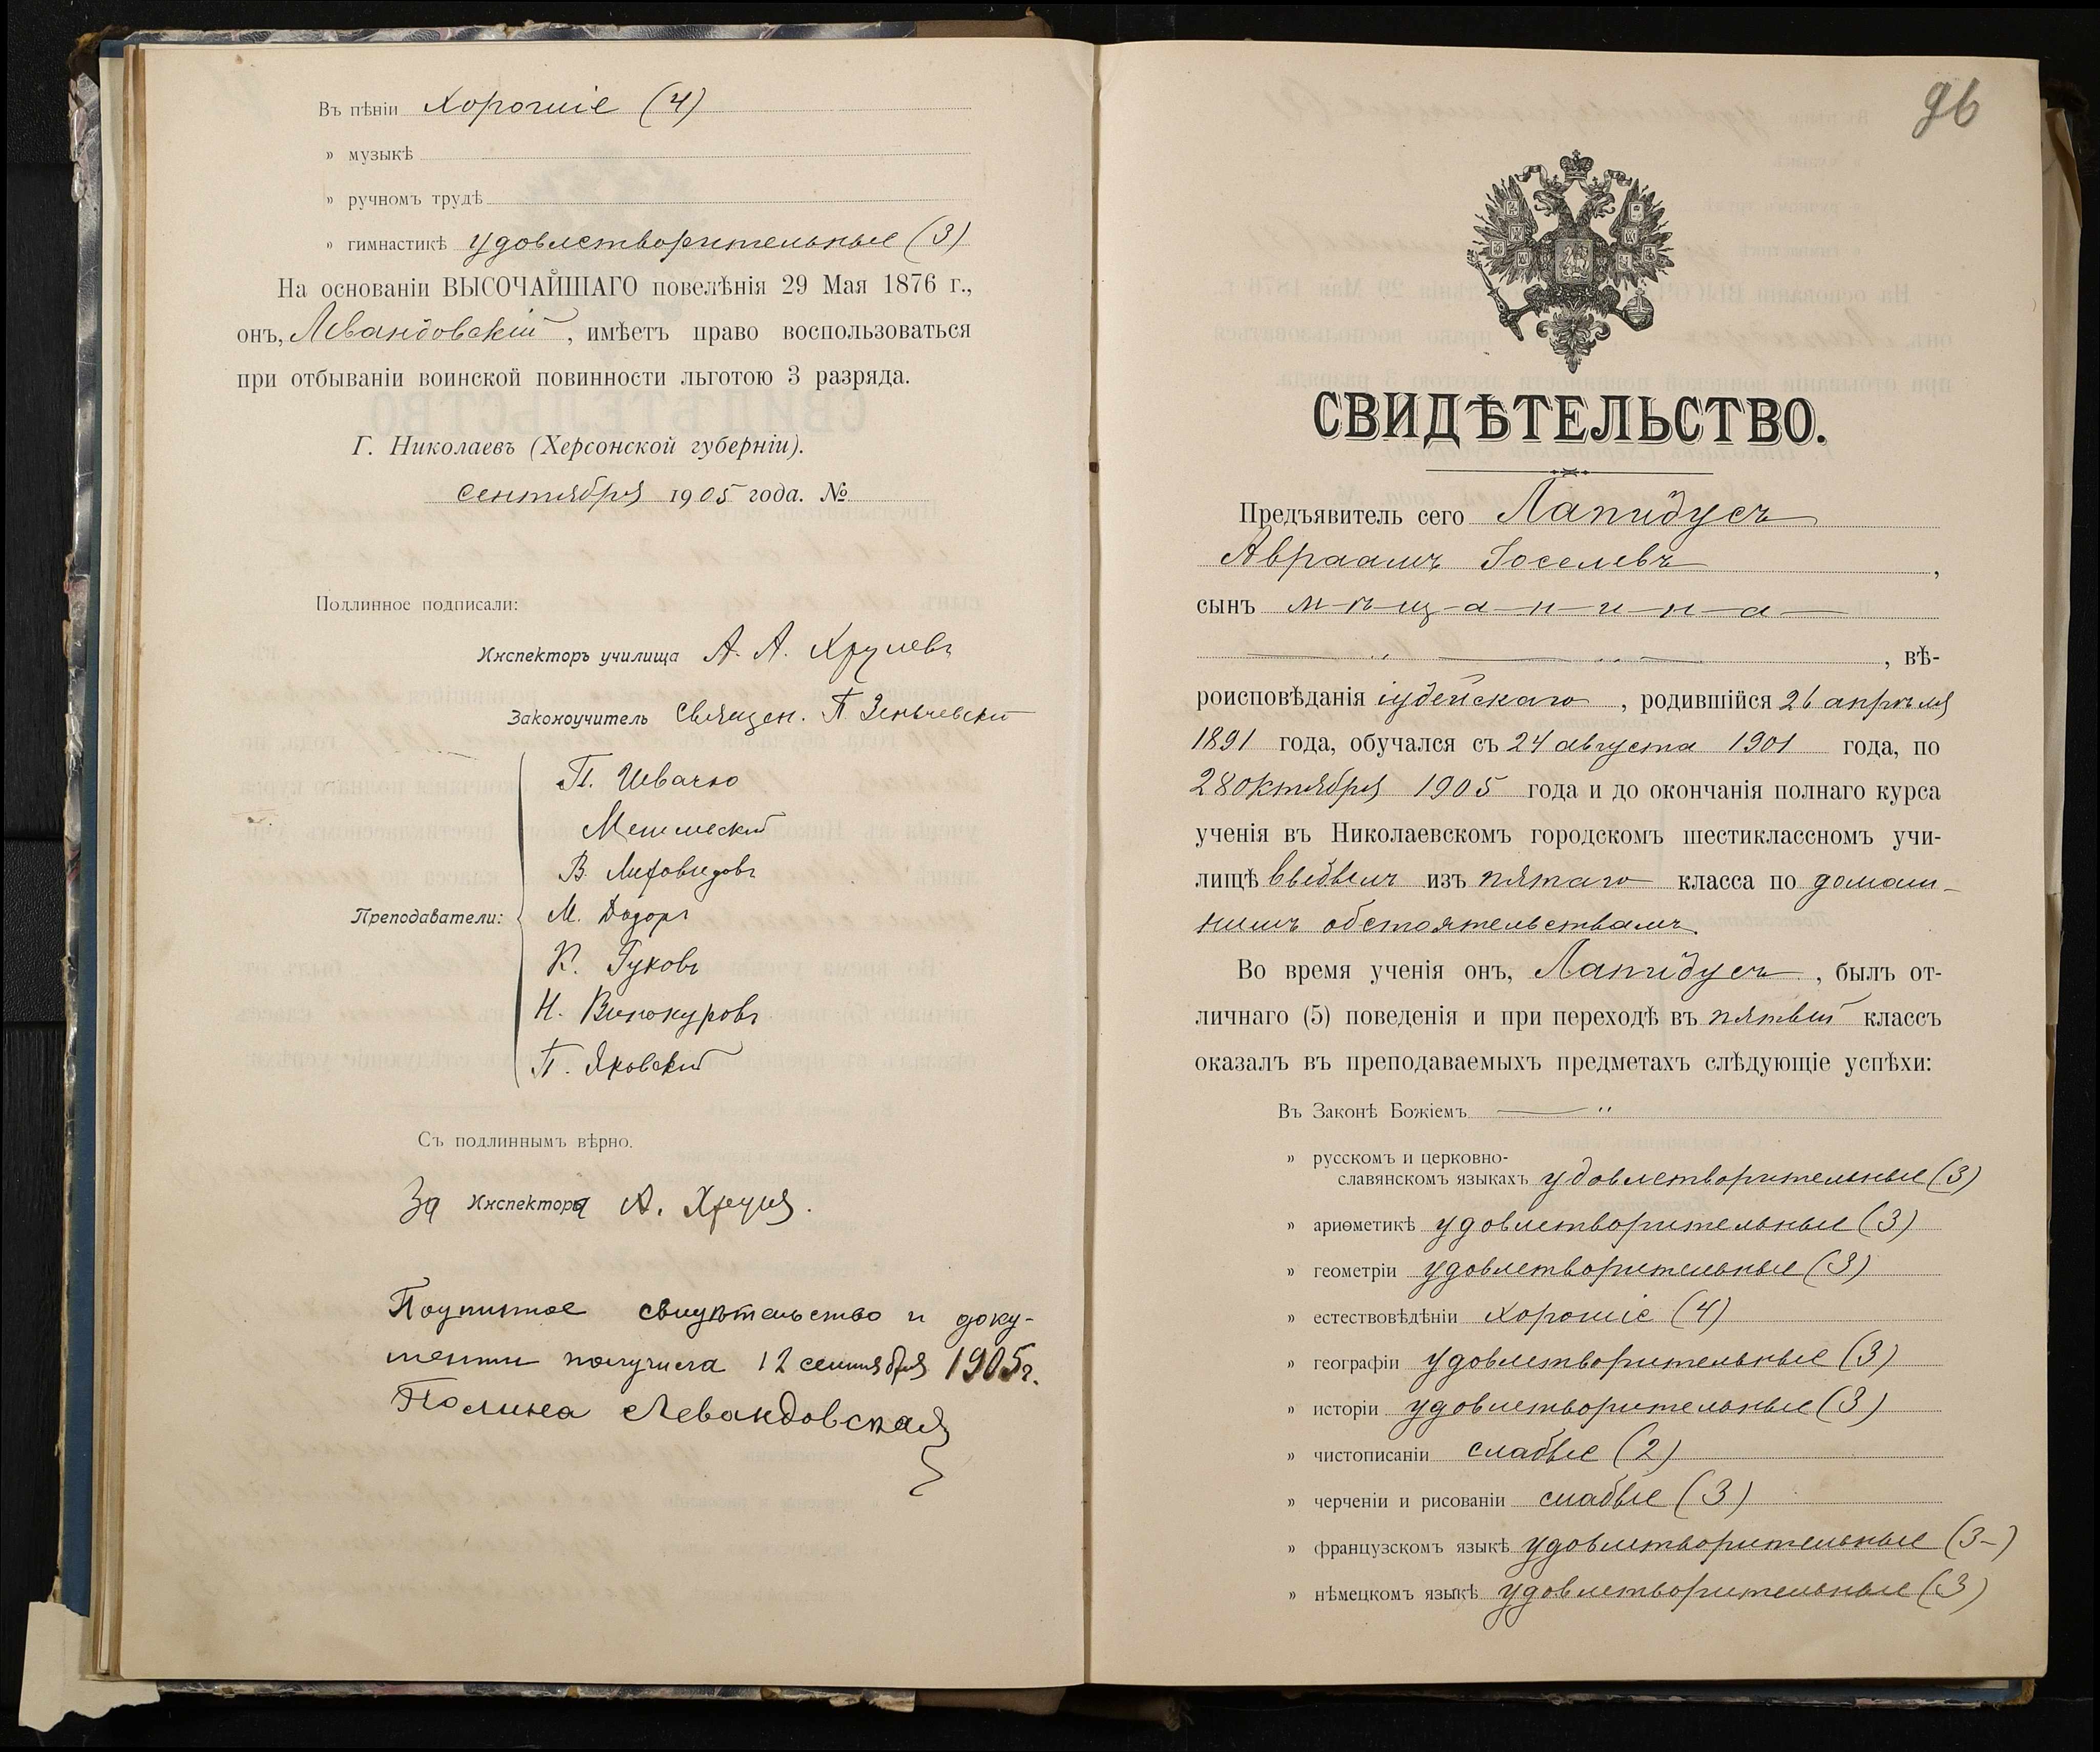 Въ пѣніи Хорошіе (4)
» музыкѣ
» ручномъ трудѣ
» гимнастикѣ удовлетворительные (3)
На основаніи ВЫСОЧАЙШАГО повелѣнія 29 Мая 1876 г.,
онъ, Левандовскій, имѣетъ право воспользоваться
при отбываніи воинской повинности льготою 3 разряда.
Г. Николаевъ (Херсонской губерніи).
сентября 1905 года. №
Подлинное подписали:
Инспекторъ училища А. А. Хрулевъ
Законоучитель Священ. П. Зеньчевскій
П. Швачко
В. Лифовидовъ
Преподаватели: М. Дадоръ
К. Гуковъ
Н. Винокуровъ
П. Яковскій
Съ подлиннымъ вѣрно.
За Инспектора А.
Подлинное свидѣтельство и доку-
менты получила 12 сентября 1905 г.
Полина Левандовская
96
СВИДѢТЕЛЬСТВО.
Предъявитель сего Лапидусъ
Авраамъ Іоселевъ,
сынъ мѣщанина
, вѣ-
роисповѣданія іудейскаго, родившійся 26 апрѣля
1891 года, обучался съ 24 августа 1901 года, по
28 октября 1905 года и до окончанія полнаго курса
ученія въ Николаевскомъ городскомъ шестиклассномъ учи-
лищѣ выбылъ изъ пятаго класса по домаш-
нимъ обстоятельствамъ.
Во время ученія онъ, Лапидусъ, былъ от-
личнаго (5) поведенія и при переходѣ въ пятый классъ
оказалъ въ преподаваемыхъ предметахъ слѣдующіе успѣхи:
Въ Законѣ Божіемъ — "
» русскомъ и церковно-
славянскомъ языкахъ удовлетворительные (3)
» ариѳметикѣ удовлетворительные (3)
» геометріи удовлетворительные (3)
» естествовѣдѣніи хорошіе (4)
» географіи удовлетворительные (3)
» исторіи удовлетворительные (3)
» чистописаніи слабые (2)
» черченіи и рисованіи слабые (3)
» французскомъ языкѣ удовлетворительные (3-)
» нѣмецкомъ языкѣ удовлетворительные (3)